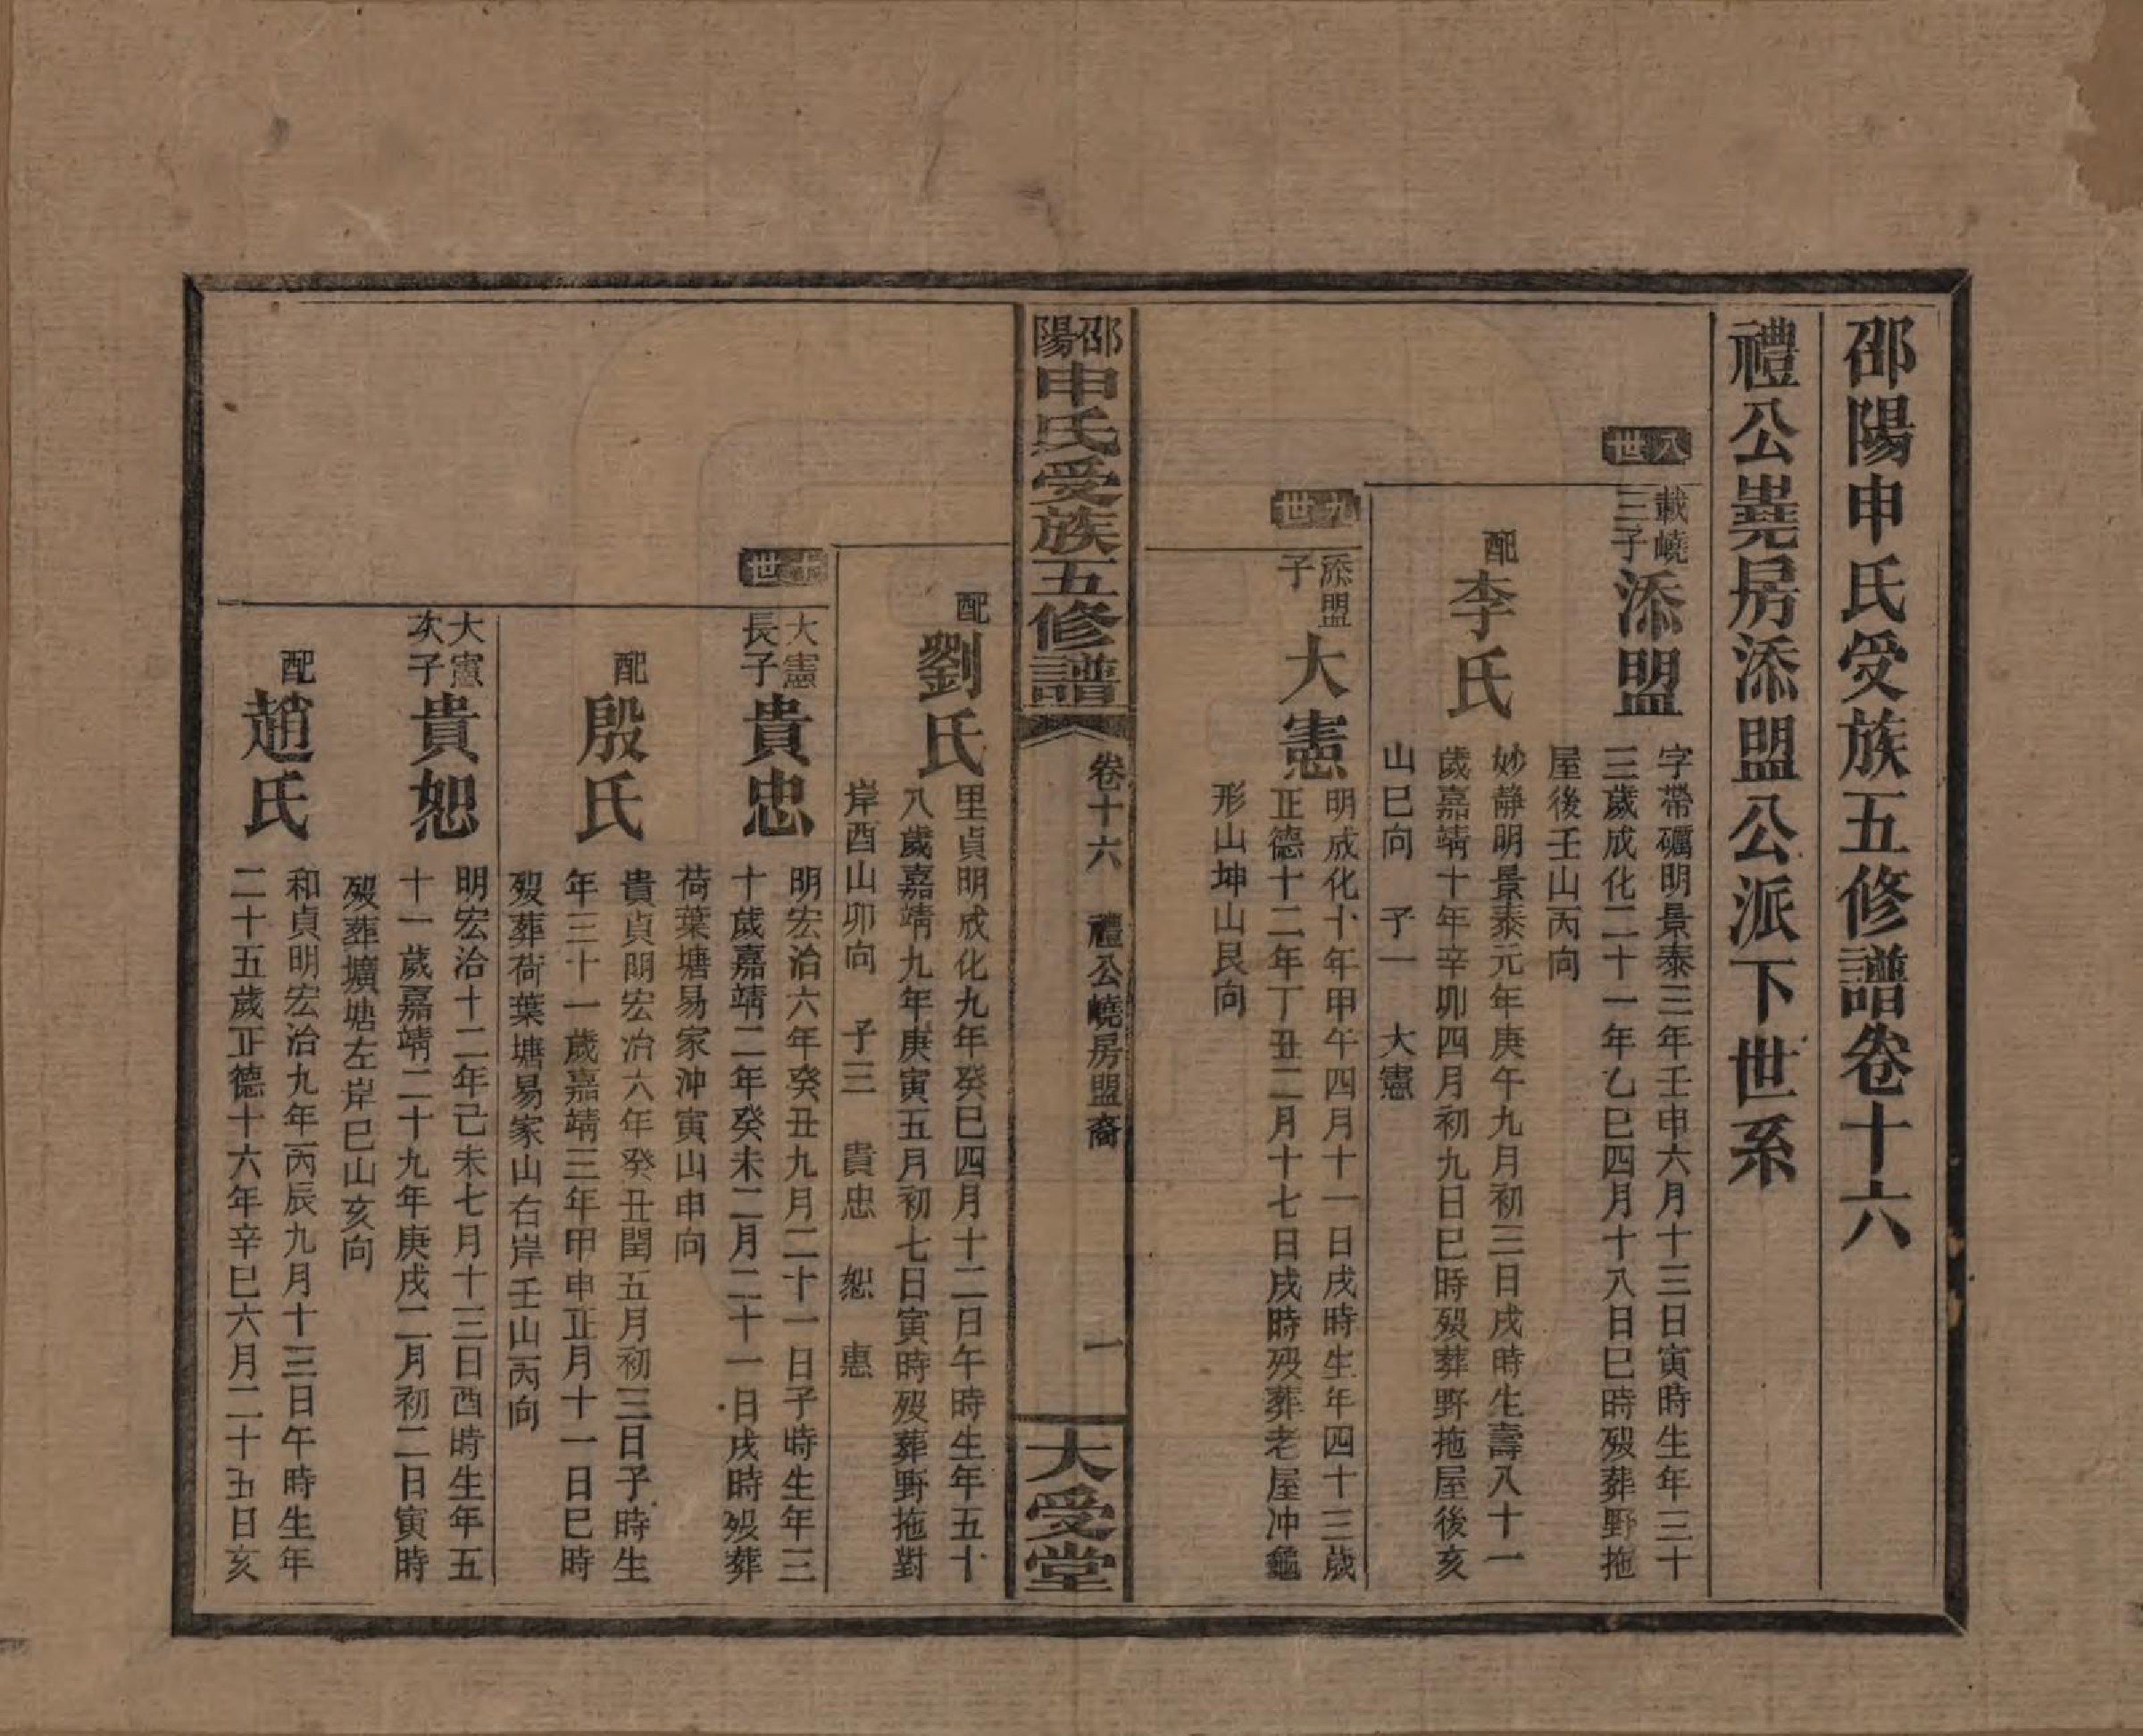 邵陽申氏受族五修譜卷十六
禮公嶤房添盟公派下世系
八世
載嶢
三子
添盟
字帶礪明景泰三年壬申六月十三日寅時生年三十
三歲成化二十一年乙巳四月十八日巳時歿葬野拖
屋後壬山丙向
配
李氏
妙靜明景泰元年庚午九月初三日戌時生壽八十一
歲嘉靖十年辛卯四月初九日巳時歿葬野拖屋後亥
山巳向 子一 大憲
九世
添盟
子
大憲
明成化十年甲午四月十一日戌時生年四十三歲
正德十二年丁丑二月十七日戌時歿葬老屋冲龜
形山坤山艮向
邵陽申氏受族五修譜
卷十六 禮公嶢房盟裔 一
大受堂
配
劉氏
里貞明成化九年癸巳四月十二日午時生年五十
八歲嘉靖九年庚寅五月初七日寅時歿葬野拖對
岸酉山卯向 子三 貴忠 恕 惠
十世
大憲
長子
貴忠
明宏治六年癸丑九月二十一日子時生年三
十歲嘉靖二年癸未二月二十一日戌時歿葬
荷葉塘易家沖寅山申向
配
殷氏
貴貞明宏治六年癸丑閏五月初三日子時生
年三十一歲嘉靖三年甲申正月十一日巳時
歿葬荷葉塘易家山右岸壬山丙向
大憲
次子
貴恕
明宏治十二年己未七月十三日酉時生年五
十一歲嘉靖二十九年庚戌二月初二日寅時
歿葬壙塘左岸巳山亥向
配
趙氏
和貞明宏治九年丙辰九月十三日午時生年
二十五歲正德十六年辛巳六月二十五日亥